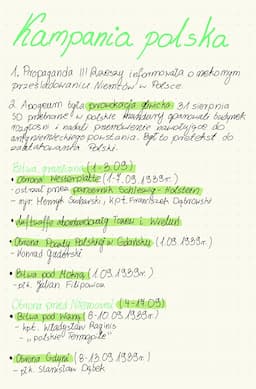 Kampania polska
1. Propaganda III Rzeszy informowała o rzekomym
prześladowaniu Niemców w Polsce.
2. Apogeum była prowokacja gliwicka 31 sierpnia
SD przebrane w polskie mundury opanowali budynek
rozgłośni i nadali przemówienie nawołujące do
antyniemieckiego powstania. Był to pretekst do
zaatakowania Polski.
Bitwa graniczna (1-3.09)
• Obrona Westerplatte (1-7.09.1939r.)
- ostrzał przez pancernik Schleswig-Holstein
- mjr. Henryk Sucharski, kpt. Franciszek Dąbrowski
• Luftwaffe zbombardowały Tczew i Wieluń
• Obrona Poczty Polskiej w Gdańsku (1.09.1939r.)
- Konrad Guderski
• Bitwa pod Mokrą (1.09.1939r.)
- płk. Julian Filipowicz
Obrona przed Niemcami (4-17.09)
• Bitwa pod Wizną (8-10.09.1939r.)
- kpt. Władysław Raginis
- „polskie Termopile"
• Obrona Gdyni (8-13.09.1939r.)
- płk. Stanisław Dąbek